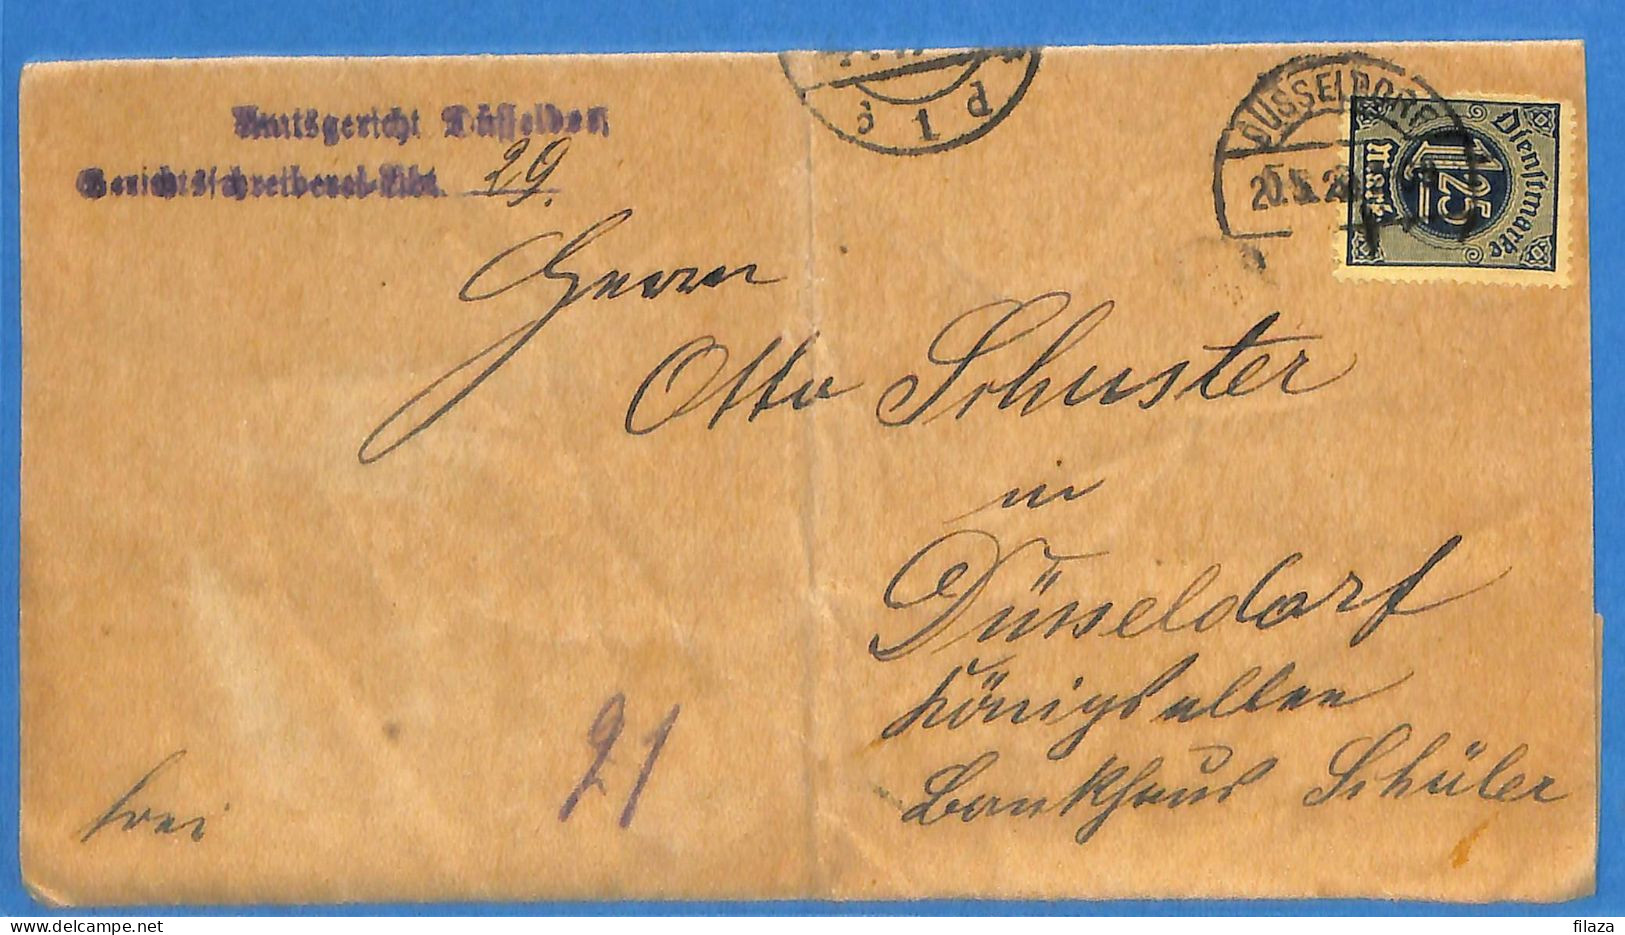 Amtsgericht Düsseldorf
Gerichtsschreiberei Abt. 29.
d 1 9
DÜSSELDORF
20.5.2
Dienstmarke
1 25
Mark
Herrn
Otto Schuster
in
Düsseldorf
Königsallee
Bankhaus Schüler
frei
21
filaza